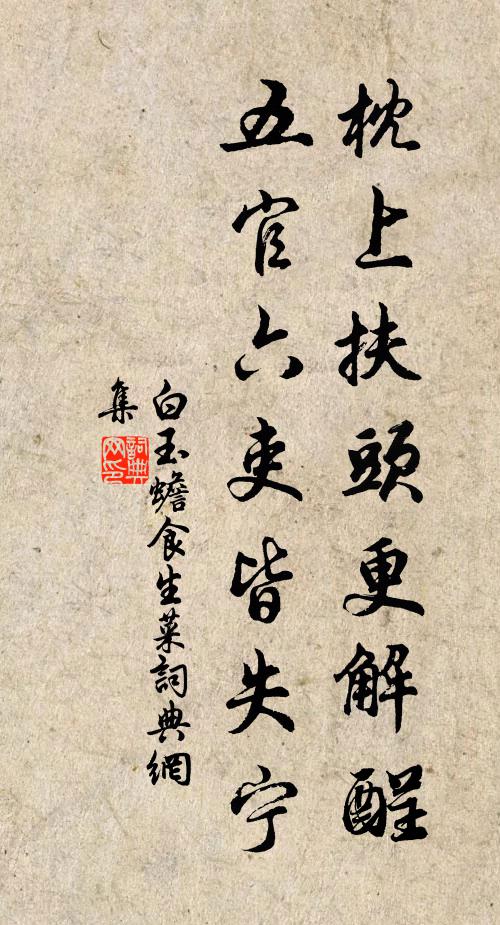 枕上扶頭更解酲
五官六吏皆失宁
白玉蟾食生菜詞典網
集
詞典网印